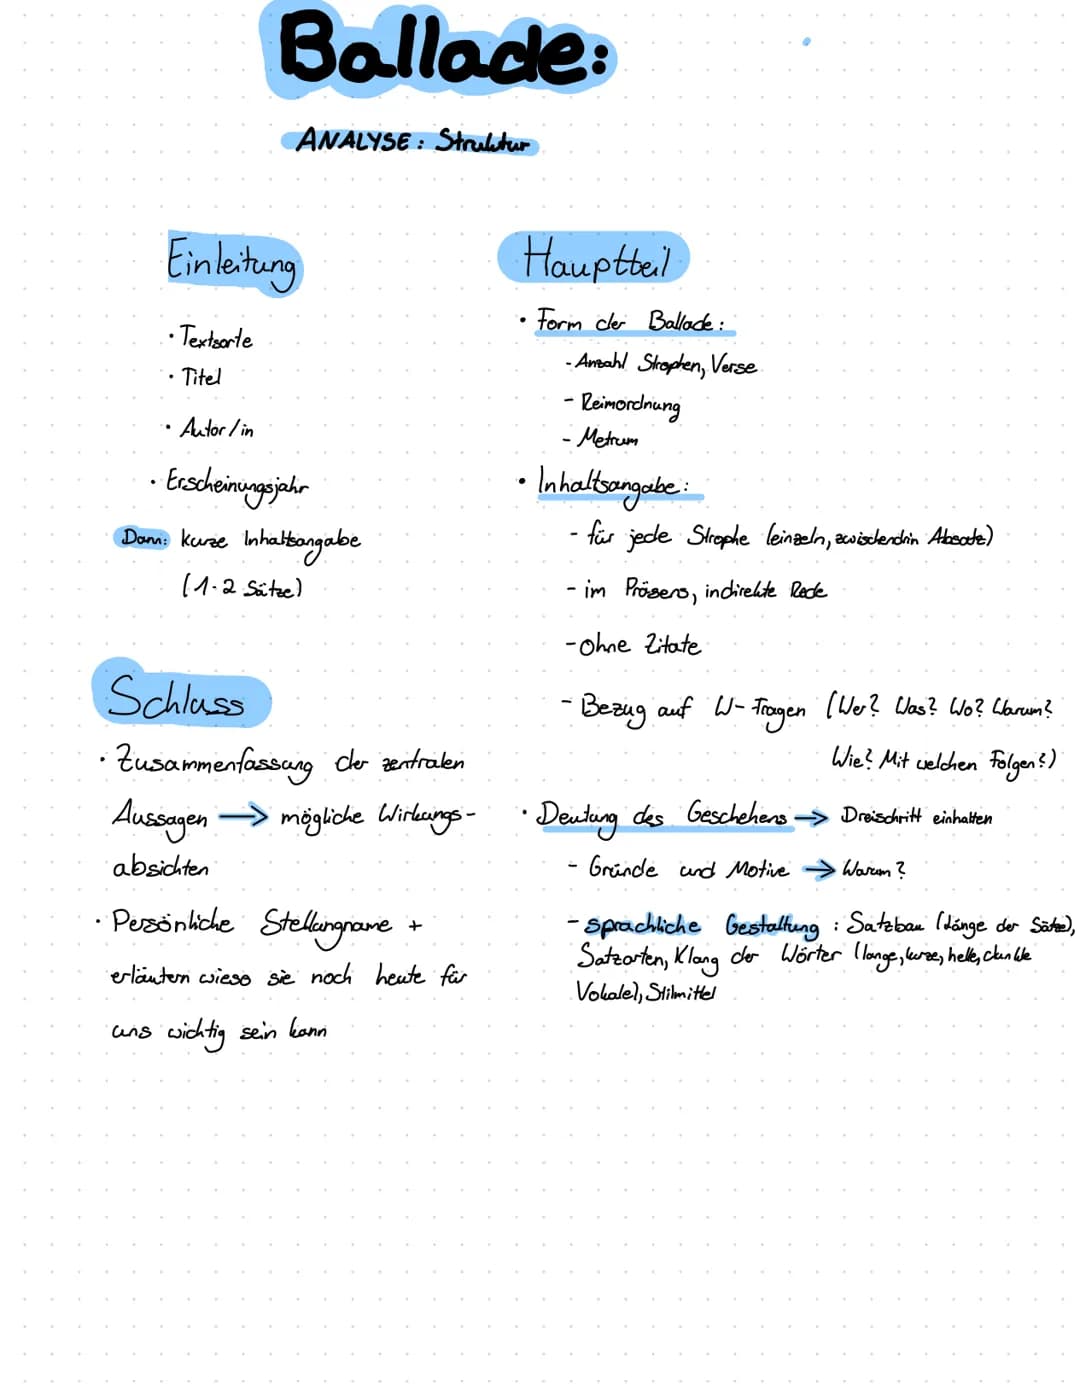 Ballade:
ANALYSE: Struktur
Einleitung
• Textsorte
• Titel
• Autor/in
• Erscheinungsjahr
Dann: kurze Inhaltsangabe
(1-2 Sätze)
Schluss
• Zusammenfassung der zentralen
Aussagen → mögliche Wirkungs-
absichten
• Persönliche Stellungname +
erläutern wieso sie noch heute für
uns wichtig sein kann
Hauptteil
• Form der Ballade:
- Anzahl Strophen, Verse
- Reimordnung
- Metrum
• Inhaltsangabe:
- für jede Strophe (einzeln, zwischendrin Absatz)
- im Präsens, indirekte Rede
- ohne Zitate
- Bezug auf W-Fragen (Wer? Was? Wo? Warum?
Wie? Mit welchen Folgen?)
• Deutung des Geschehens → Dreischritt einhalten
- Gründe und Motive → Warum?
- sprachliche Gestaltung: Satzbau (Länge der Sätze),
Satzarten, Klang der Wörter (lange, kurze, helle, dunkle
Vokale), Stilmittel